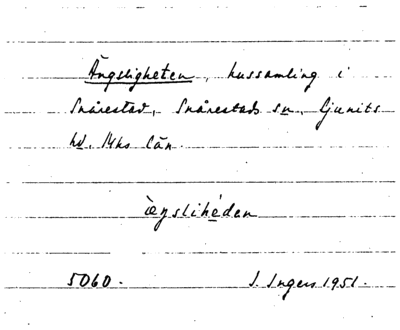 Ängsligheten, hussamling i
Snårestad, Snårestads sn, Ljunits
hd. Mhs län.
æ̀ŋslihé̱den
5060. I. Ingers 1951.